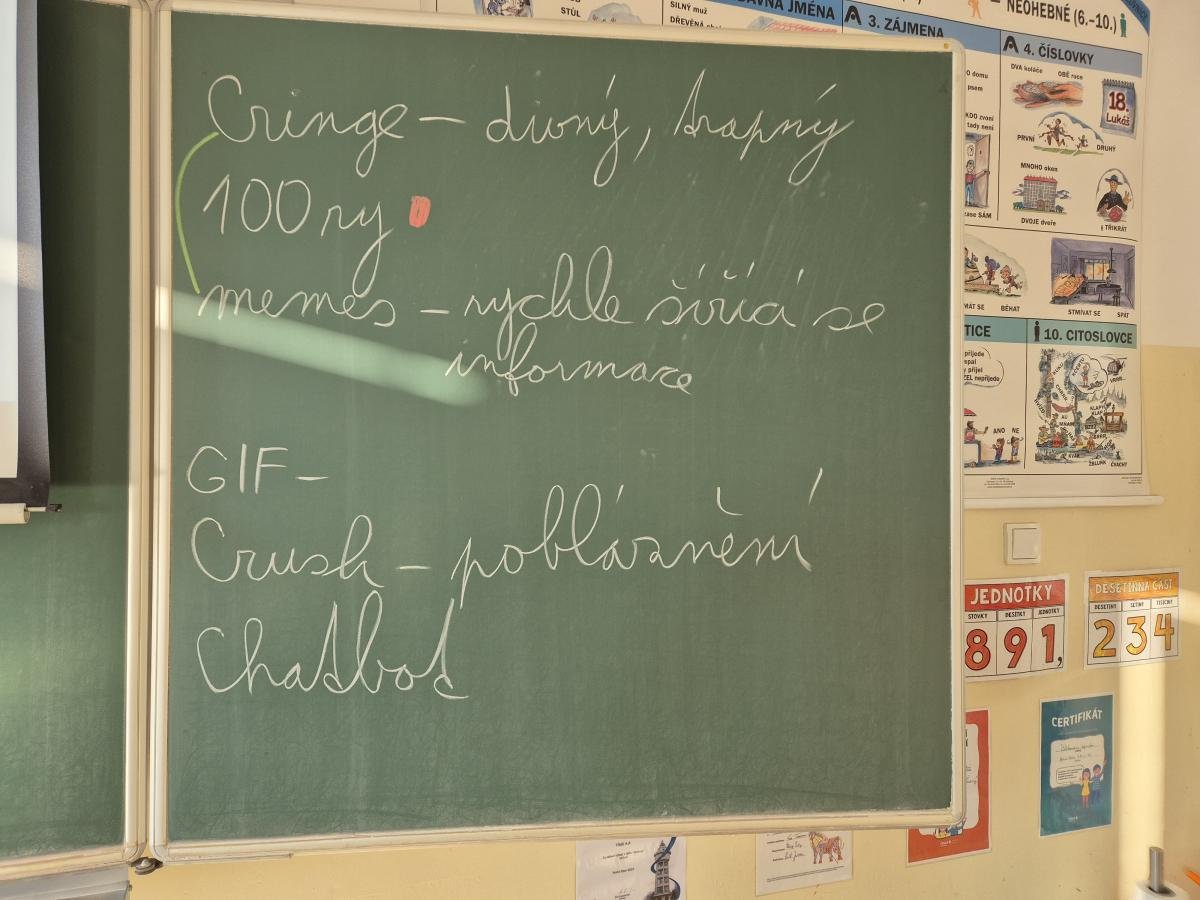 Cringe – divný, trapný
100ry
memes – rychle šířící se
informace
GIF –
Crush – poblásnění
Chatbot
STŮL
SILNÝ muž
DŘEVĚNÁ
JMÉNA
3. ZÁJMENA
NEOHEBNÉ (6.–10.)
4. ČÍSLOVKY
DVA koláče
OBĚ ruce
18.
Lukáš
PRVNÍ
DRUHÝ
MNOHO oken
DVOJE dveře
TŘIKRÁT
KDO zvoní
tady není
SÁM
BĚHAT
STMÍVAT SE
SPÁT
10. CITOSLOVCE
ANO
NE
JEDNOTKY
STOVKY
DESÍTKY
JEDNOTKY
891,
DESETINNÁ ČÁST
DESETINY
SETINY
TISÍCINY
234
CERTIFIKÁT